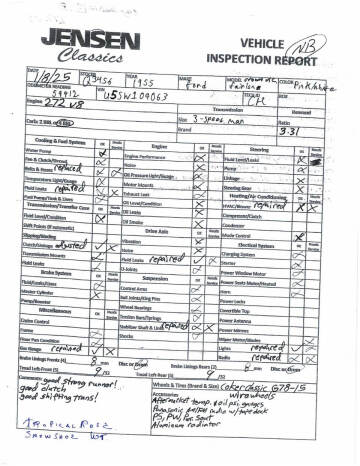 JENSEN
Classics
VEHICLE
INSPECTION REPORT
NB
DATE 1/8/25 YEAR 1955 MAKE Ford MODEL Crown Vic Fairlane COLOR Pink/White
VIN U5SW104063
Engine 272 V8
Transmission
Size 3-speed man
Carb: 2 BBL
Brand
3.31
Cooling & Fuel System OK Needs Service
Engine OK Needs Service
Steering OK Needs Service
Water Pump
Engine Performance
Fluid Level/Leaks
Fan & Clutch/Shroud
Noise
Pump
Belts & Hoses replaced
Oil Pressure Light/Gauge
Linkage
Temperature Light/Gauge
Motor Mounts
Steering Gear
Fluid Leaks repaired
Exhaust Leak
Heating/Air Conditioning
Fuel Pump/Tank & Lines
Oil Level/Condition
HVAC/Blower repaired
Transmission/Transfer Case
Oil Leaks
Compressor/Clutch
Fluid Level/Condition
Oil Smoke
Condenser
Shift Points (If Automatic)
Drive Axle
Mode Control
Slipping/Binding
Vibration
Electrical System
Clutch/Linkage adjusted
Noise
Charging System
Transmission Mounts
Fluid Leaks repaired
Starter
Fluid Leaks
U-Joints
Power Window Motor
Brake System
Suspension
Power Seats Motor/Heated
Fluid/Leaks/Lines
Control Arms
Horn
Master Cylinder
Ball Joints/King Pins
Power Locks
Pump/Booster
Wheel Bearings
Convertible Top
Miscellaneous
Torsion Bars/Springs
Power Antenna
Cruise Control
Stabilizer Shaft & Links repaired
Power Mirrors
Frame
Shocks
Wiper Motor/Blades
Floor Pan Condition
Lights repaired
Gas Gauge repaired
Radio repaired
Brake Linings Fronts (4) 8 mm Disc or Drum
Brake Linings Rears (2) 8 mm Disc or Drum
Tread Left-Front (5) 9/32
Tread Left-Rear (5) 9/32
Comments: good strong runner!
good clutch
good shifting trans!
Wheels & Tires (Brand & Size) Coker Classic G78-15
Accessories wirewheels
Aftermarket temp. & oil psi gauges
Panasonic AM/FM radio w/ tape deck
PS, PW, Pwr Seat
Aluminum radiator
TROPICAL ROSE
SNOWSHOE WT